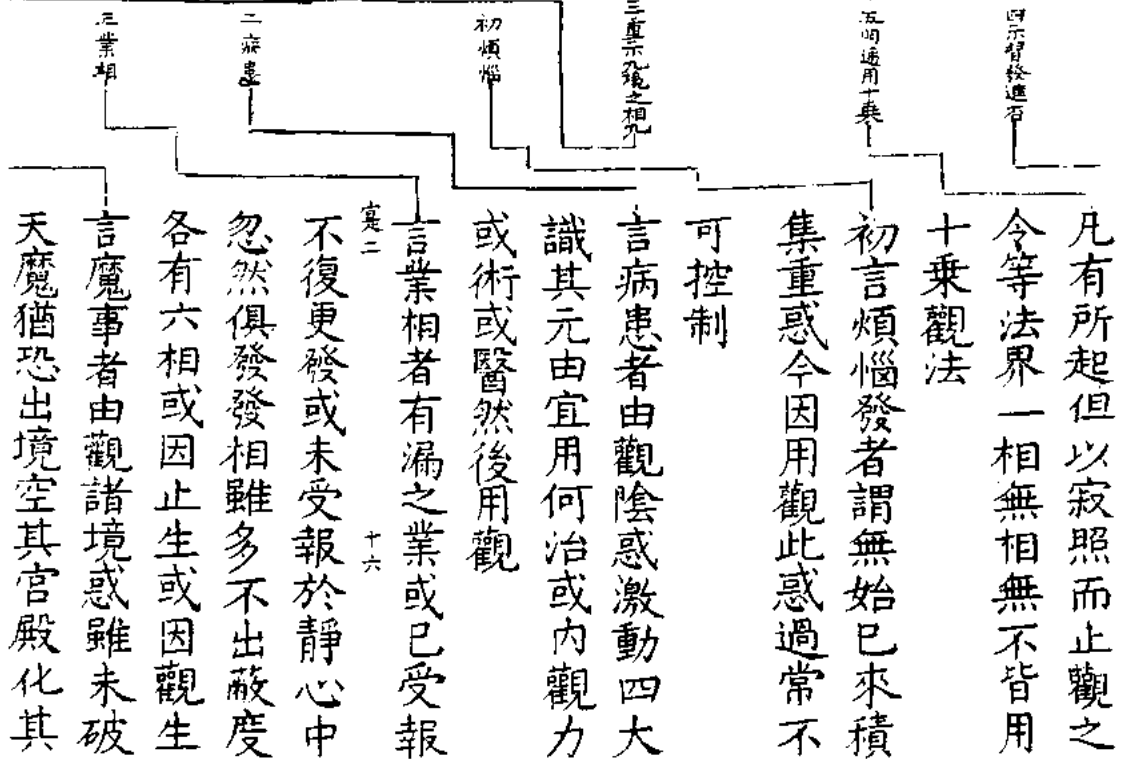 四示習發進否
五明通用十乗
三重示九境之相九
初煩惱
二病患
三業相
凡有所起但以寂照而止觀之
令等法界一相無相無不皆用
十乗觀法
初言煩惱發者謂無始已來積
集重惑今因用觀此惑過常不
可控制
言病患者由觀陰惑激動四大
識其元由宜用何治或內觀力
或術或醫然後用觀
言業相者有漏之業或已受報
寔二 十六
不復更發或未受報於靜心中
忽然俱發發相雖多不出蔽度
各有六相或因止生或因觀生
言魔事者由觀諸境惑雖未破
天魔猶恐出境空其宮殿化其